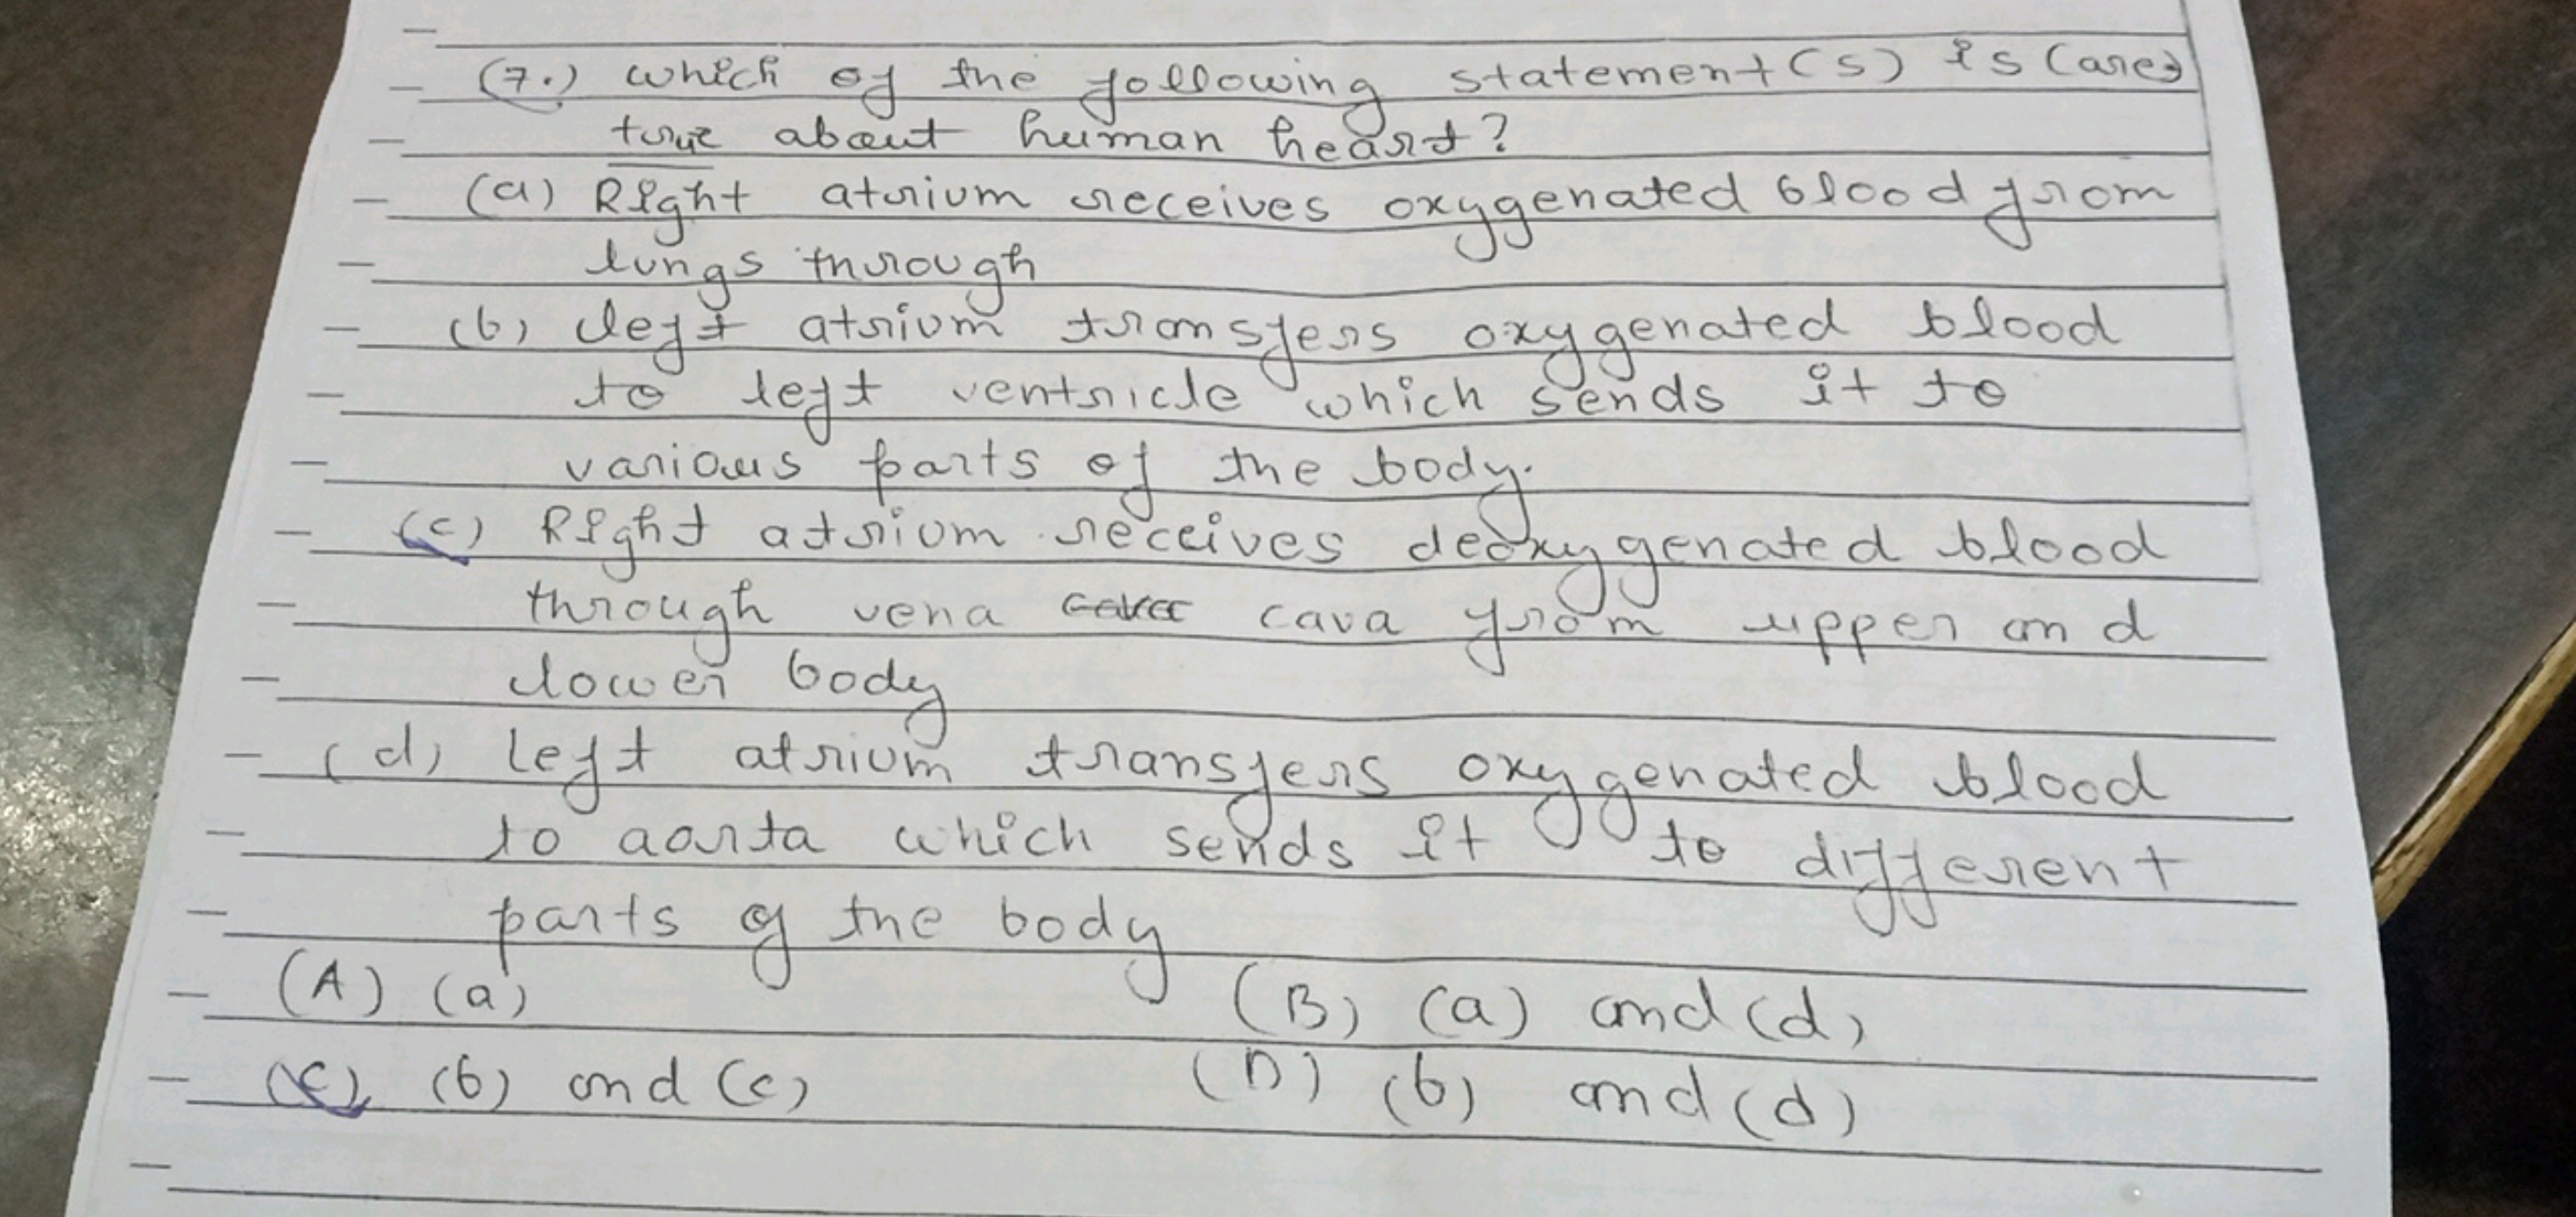 (7.) which of the following statement(s) is (are)
true about human heart?
(a) Right atrium receives oxygenated blood from
lungs through
(b) left atrium transfers oxygenated blood
to left ventricle which sends it to
various parts of the body.
(c) Right atrium receives deoxygenated blood
through vena cava from upper and
lower body
(d) left atrium transfers oxygenated blood
to aorta which sends it to different
parts of the body
(A) (a) (B) (a) and (d)
(C) (b) and (c) (D) (b) and (d)